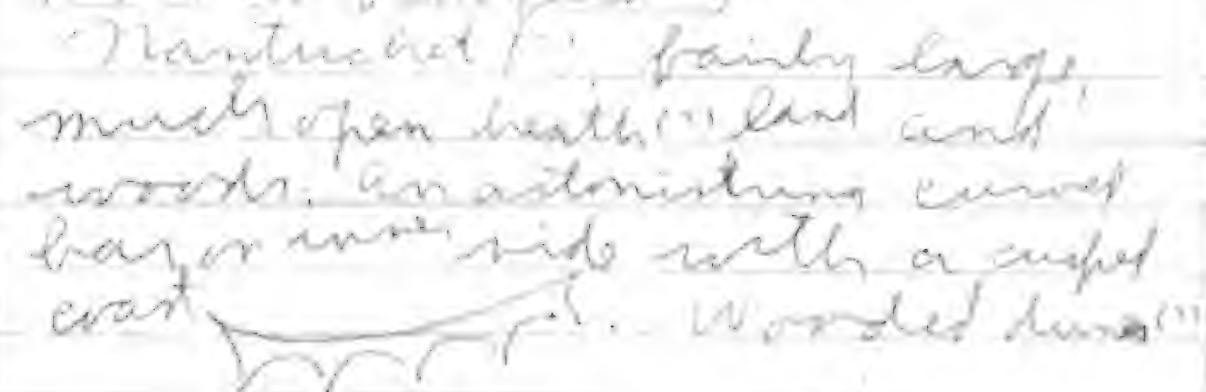 Nantucket fairly large,
much open heath (?) land and
woods. An astonishing curved
bay on inner side with a cusped
coast . Wooded dunes (?)